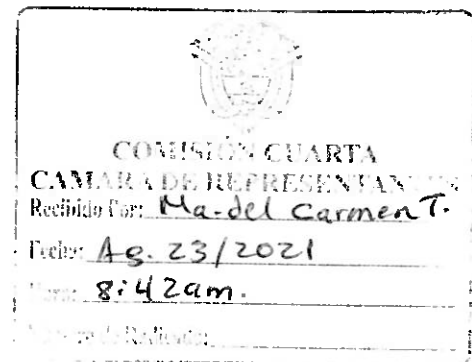 COMISIÓN CUARTA
CAMARA DE REPRESENTANTES
Recibido Por: Ma. del Carmen T.
Fecha: Ag. 23/2021
Hora: 8:42am.
de Radicado: